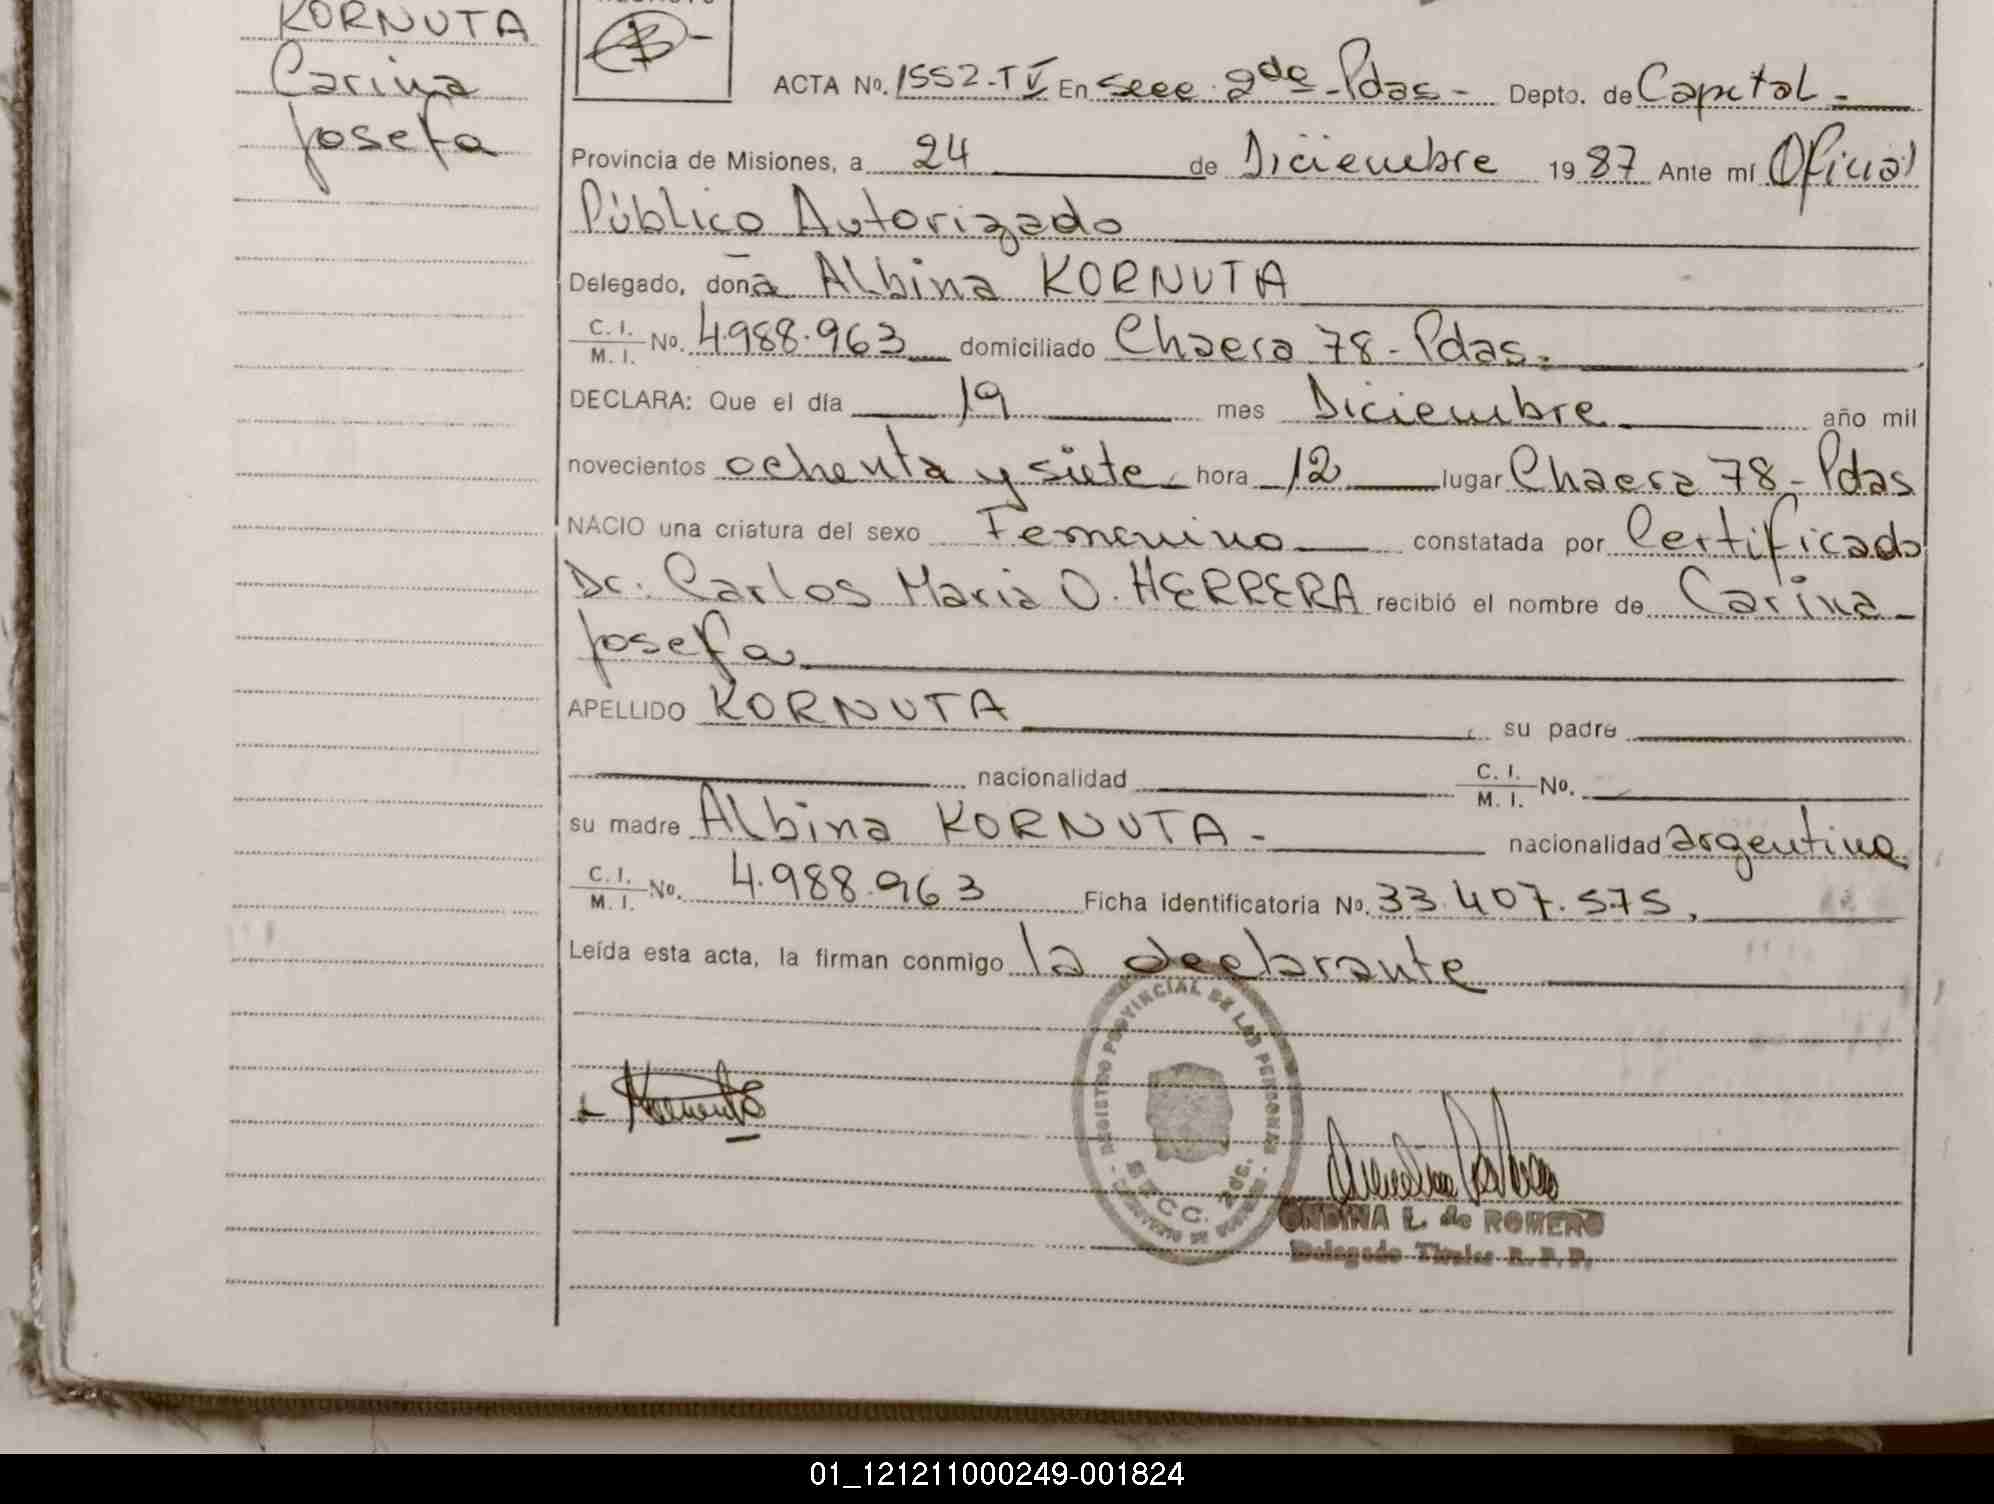 KORNUTA
Carina
Josefa
ACTA No. 1552-T V En Secc. 2da - Pdas - Depto. de Capital -
Provincia de Misiones, a 24 de Diciembre 1987 Ante mí Oficial
Público Autorizado
Delegado, doña Albina KORNUTA
C. I. / M. I. No. 4.988.963 domiciliado Chacra 78 - Pdas.
DECLARA: Que el día 19 mes Diciembre año mil
novecientos ochenta y siete hora 12 lugar Chacra 78 - Pdas
NACIO una criatura del sexo Femenino constatada por Certificado
Dr. Carlos Maria O. HERRERA recibió el nombre de Carina
Josefa
APELLIDO KORNUTA su padre
nacionalidad C. I. / M. I. No.
su madre Albina KORNUTA - nacionalidad argentina
C. I. / M. I. No. 4.988.963 Ficha identificatoria No. 33.407.575,
Leída esta acta, la firman conmigo la declarante
REGISTRO PROVINCIAL DE LAS PERSONAS
SECC. 2da.
ONDINA L. de ROMERO
Delegado Titular R. P. P.
01_121211000249-001824